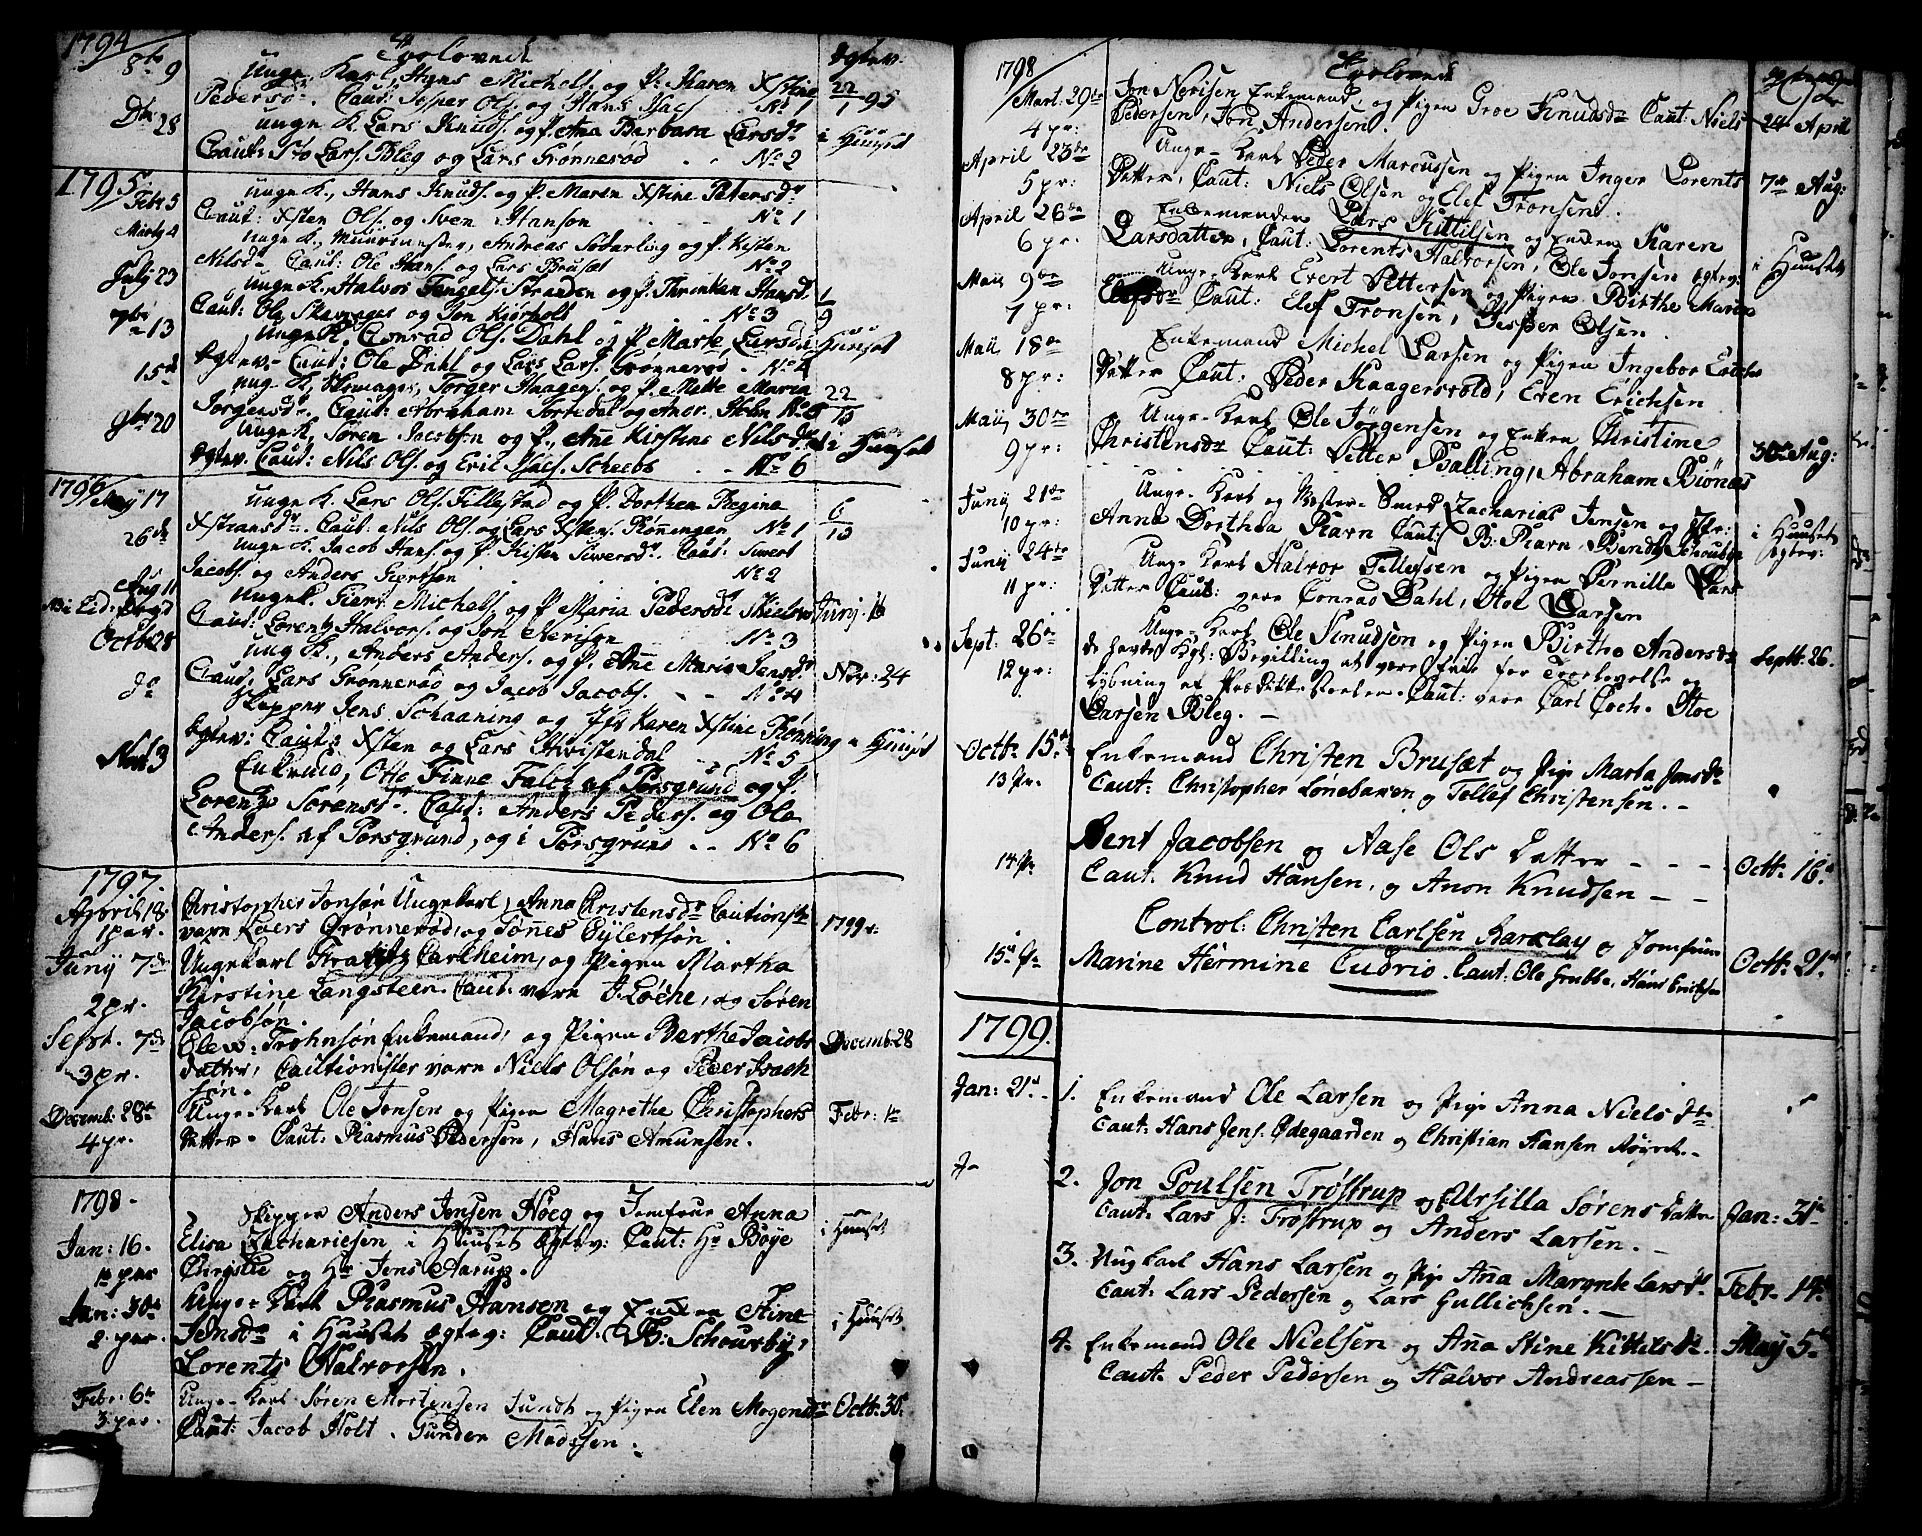 1794
Trolovede
8br 9
ungk. Karl, Hans Michels. og P. Karen Xstine
Pedersdr. Caut: Jesper Ols. og Hans Isacs. No 1
22/1 95
28
ungk. K. Lars Knuds. og P. Anna Barbara Larsdr
Caut: Lars Bleg og Lars Grönneröd No 2
i Huuset
1795
Febr 5
ungk K., Hans Knuds. og P. Maren Xstine Petersdr
Caut: Xsten Ols. og Sven Hanson No 1
4
ungk K., Muurmester, Andreas Söderling og P. Kisten
Nilsdr. Caut: Ole Hans. og Lars Brusæt No 2
July 23
ungk K., Halvor Straaden og P. Thrinkan Hansd.
Caut: Ole Skomager og Jon Kjörholt No 3
1/9
13
ungk K, Conrad Ols. Dahl og P. Marte Larsdr i Huuset
ægtev. Caut: Ole Dahl og Lars Lars. Grönneröd No 4
15d
ung K, Skomager, Torger Haagens. og P. Mette Maria
Jorgensdr. Caut: Abraham og Ander. Holm No 5
20
ungk K, Sören Jacobson og P., Anne Kirstine Nilsdr i Huuset
ægtev. Caut: Nils Ols. og Eric Isacs. Scheebs No 6
1796
May 17
ungk K. Lars Ols. Tillestad og P. Dorthea Regine
Xstiansdr. Caut: Nils Ols. og Lars Xstens. Rönningen No 1
26de
ungk K. Jacob Hans. og P. Kisten Siversdr. Caut: Sivert
Jacobs. og Anders Giertson No 2
Aug 11
ungk K. Giert Michels. og P. Maria Pedersdr
Caut: Lorentz Halvors. og Jon Nerison No 3
Octob 28
ung K., Anders Anders. og P. Anne Maria Jensdr
Caut. Lars Grönneröd og Jacob Jacobs. No 4
Nov: 24
do
Skipper Jens Schaaning og Jfr Karen Xstine Rönning i Huuset
ægtev: Caut: Xsten og Lars Hvistendal No 5
Nov 3
Enkemd, Otto Finne Falk af Porsgrund og P.
Lorenze Sörensdr. Caut: Anders Peders. og Ole
Anders. af Porsgrund, og i Porsgrund No 6
1797.
April 18
1 par.
Christopher Jonsön Ungekarl, Anna Christensdr Cautionister
varn Lars Grönneröd, og Tönnes Eylertsön.
1799
Junij 7de
2 pr.
Ungekarl Frantz Carlheim, og Pigen Martha
Kirstine Langsteen. Caut: varn J. Löche, og Sören
Jacobsön.
Sept. 7de
3 pr.
Elew: Trohnsön Enkemand, og Pigen Berthe Jacobs
datter, Cautionister varn Niels Olsön og Peder Isach
sön.
Decemb: 28
Decemb: 28de
4 pr.
Unge-Karl Ole Jonsen og Pigen Magrethe Christophers
Datter. Caut: Rasmus Pedersen, Hans Amunsen.
Febr: 1te
1798.
Jan: 16.
1te par
Skipper Anders Jensen Höeg og Jomfrue Anna
Elisa Zachariesen i Huuset ægtev: Caut: Hr Böye
Christie og Hr Jens Aarup.
i Huuset
Jan: 30te
2 par.
Unge-Karl Rasmus Hansen og Enken Stine
Jensdr i Huuset ægtev: Caut. B: Schousby,
Lorents Halvorsen.
i Huuset
Febr: 6te
3 par.
Unge-Karl Sören Mortensen Sundt og Pigen Elen Mogensdr
Caut: Jacob Holt. Gunder Madssen.
Octb: 30.
1798
Trolovede
Mart. 29de
4 pr:
Jon Nerisen Enkemand, og Pigen Groe Knudsdr Caut: Niels
Pedersen, Jon Andersen.
24 April
April 23de
5 pr:
Unge-Karl Peder Marcussen og Pigen Inger Lorents
Datter, Caut: Niels Olsen og Elef Tronsen.
7de Aug:
April 26de
6 pr:
Enkemanden Lars Kittilsen og Enken Karen
Larsdatter, Caut: Lorents Halvorsen, Ole Jonsen ægtev:
i Huuset
Maii 9de
7 pr:
Unge-Karl Evert Pettersen og Pigen Birthe Marie
Elefsdr Caut: Elef Tronsen, Jesper Olsen.
Maii 18de
8 pr:
Enkemand Michel Larsen og Pigen Ingebor Erichs
Datter Caut: Peder Kaagersvold, Even Erichsen
Maii 30te
9 pr:
Unge-Karl Ole Jörgensen og Enken Christine
Christensdr Caut: Petter Balling, Abraham Biönes
30te Aug:
Junij 21de
10 pr:
Unge-Karl og Mester-Smed Zacharias Jensen og Jfr:
Anna Dorthea Ravn Caut: B: Ravn, Bendt Schousbye
i Huuset
ægtev:
Junij 24de
11 pr:
Unge Karl Halvor Tellefsen og Pigen Pernille Lars
Datter Caut: vare Conrad Dahl, Stoe Larsen
Sept: 26de
12 pr:
Unge-Karl Ole Knudsen og Pigen Birthe Andersdr
de havde Kgl: Bevilling at være frie for Troelovelse og
Lysning af Prædikkestoelen. Caut: vare Carl Coch. Stoe
Larsen Bleg. —
Septb. 26.
Octb: 15de
13 Pr.
Enkemand Christen Brusæt og Pige Marta Jensdr
Caut: Christopher Lönebaken og Tellef Christensen. —
14 Pr
Bent Jacobsen og Aase Ols Datter — — —
Caut. Knud Hansen, og Anon Knudsen — —
Octb: 16.
15de Pr
Control: Christen Carlsen Barclay og Jomfrue
Marine Hermine Cudrio. Caut: Ole Grubbe, Hans Erichsen
Octb: 21.
1799.
Jan: 21de
1. Enkemand Ole Larsen og Pige Anna Nielsdtr
Caut: Hans Jens. Ödegaarden og Christian Hansen
2. Jon Poulsen Tröstrup og Ursilla Sörens Datter
Caut: Lars J: Tröstrup og Anders Larsen. —
Jan: 31te
3. Ungkarl Hans Larsen og Pige Anna Margrete Larsdr
Caut: Lars Pedersen og Lars Gullichsen. —
Febr. 14de
4. Enkemand Ole Nielsen og Anna Stine Kittelsdr.
Caut: Peder Pedersen og Halvor Andreassen —
May 5te